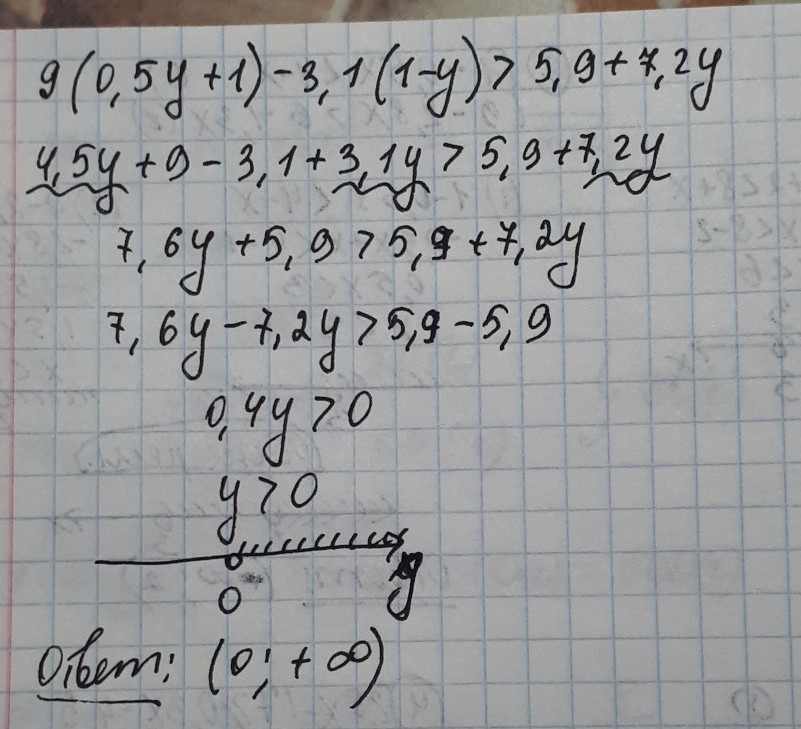 9(0,5y+1)-3,1(1-y)>5,9+7,2y
4,5y+9-3,1+3,1y>5,9+7,2y
7,6y+5,9>5,9+7,2y
7,6y-7,2y>5,9-5,9
0,4y>0
y>0
0 y
Ответ: (0; +∞)